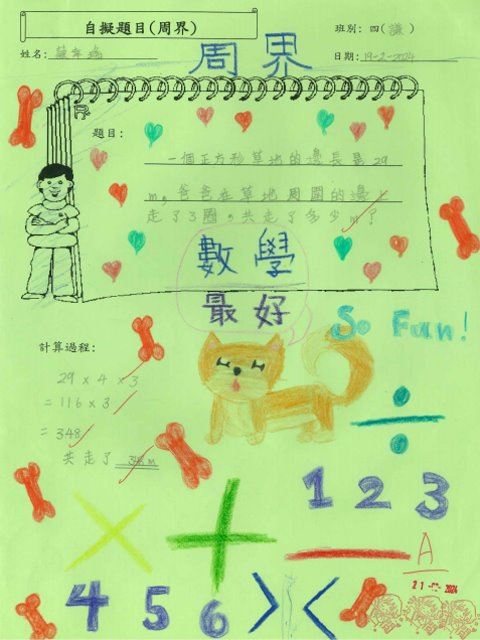 自擬題目(周界)
班別：四(謙)
姓名：
日期：19-2-2024
周界
題目：
一個正方形草地的邊長是29
m，爸爸在草地周圍的邊上
走了3圈，共走了多少m？
數學
最好
So Fun!
計算過程：
29 × 4 × 3
= 116 × 3
= 348
共走了 348 m
÷
1 2 3
× + −
A
4 5 6 > <